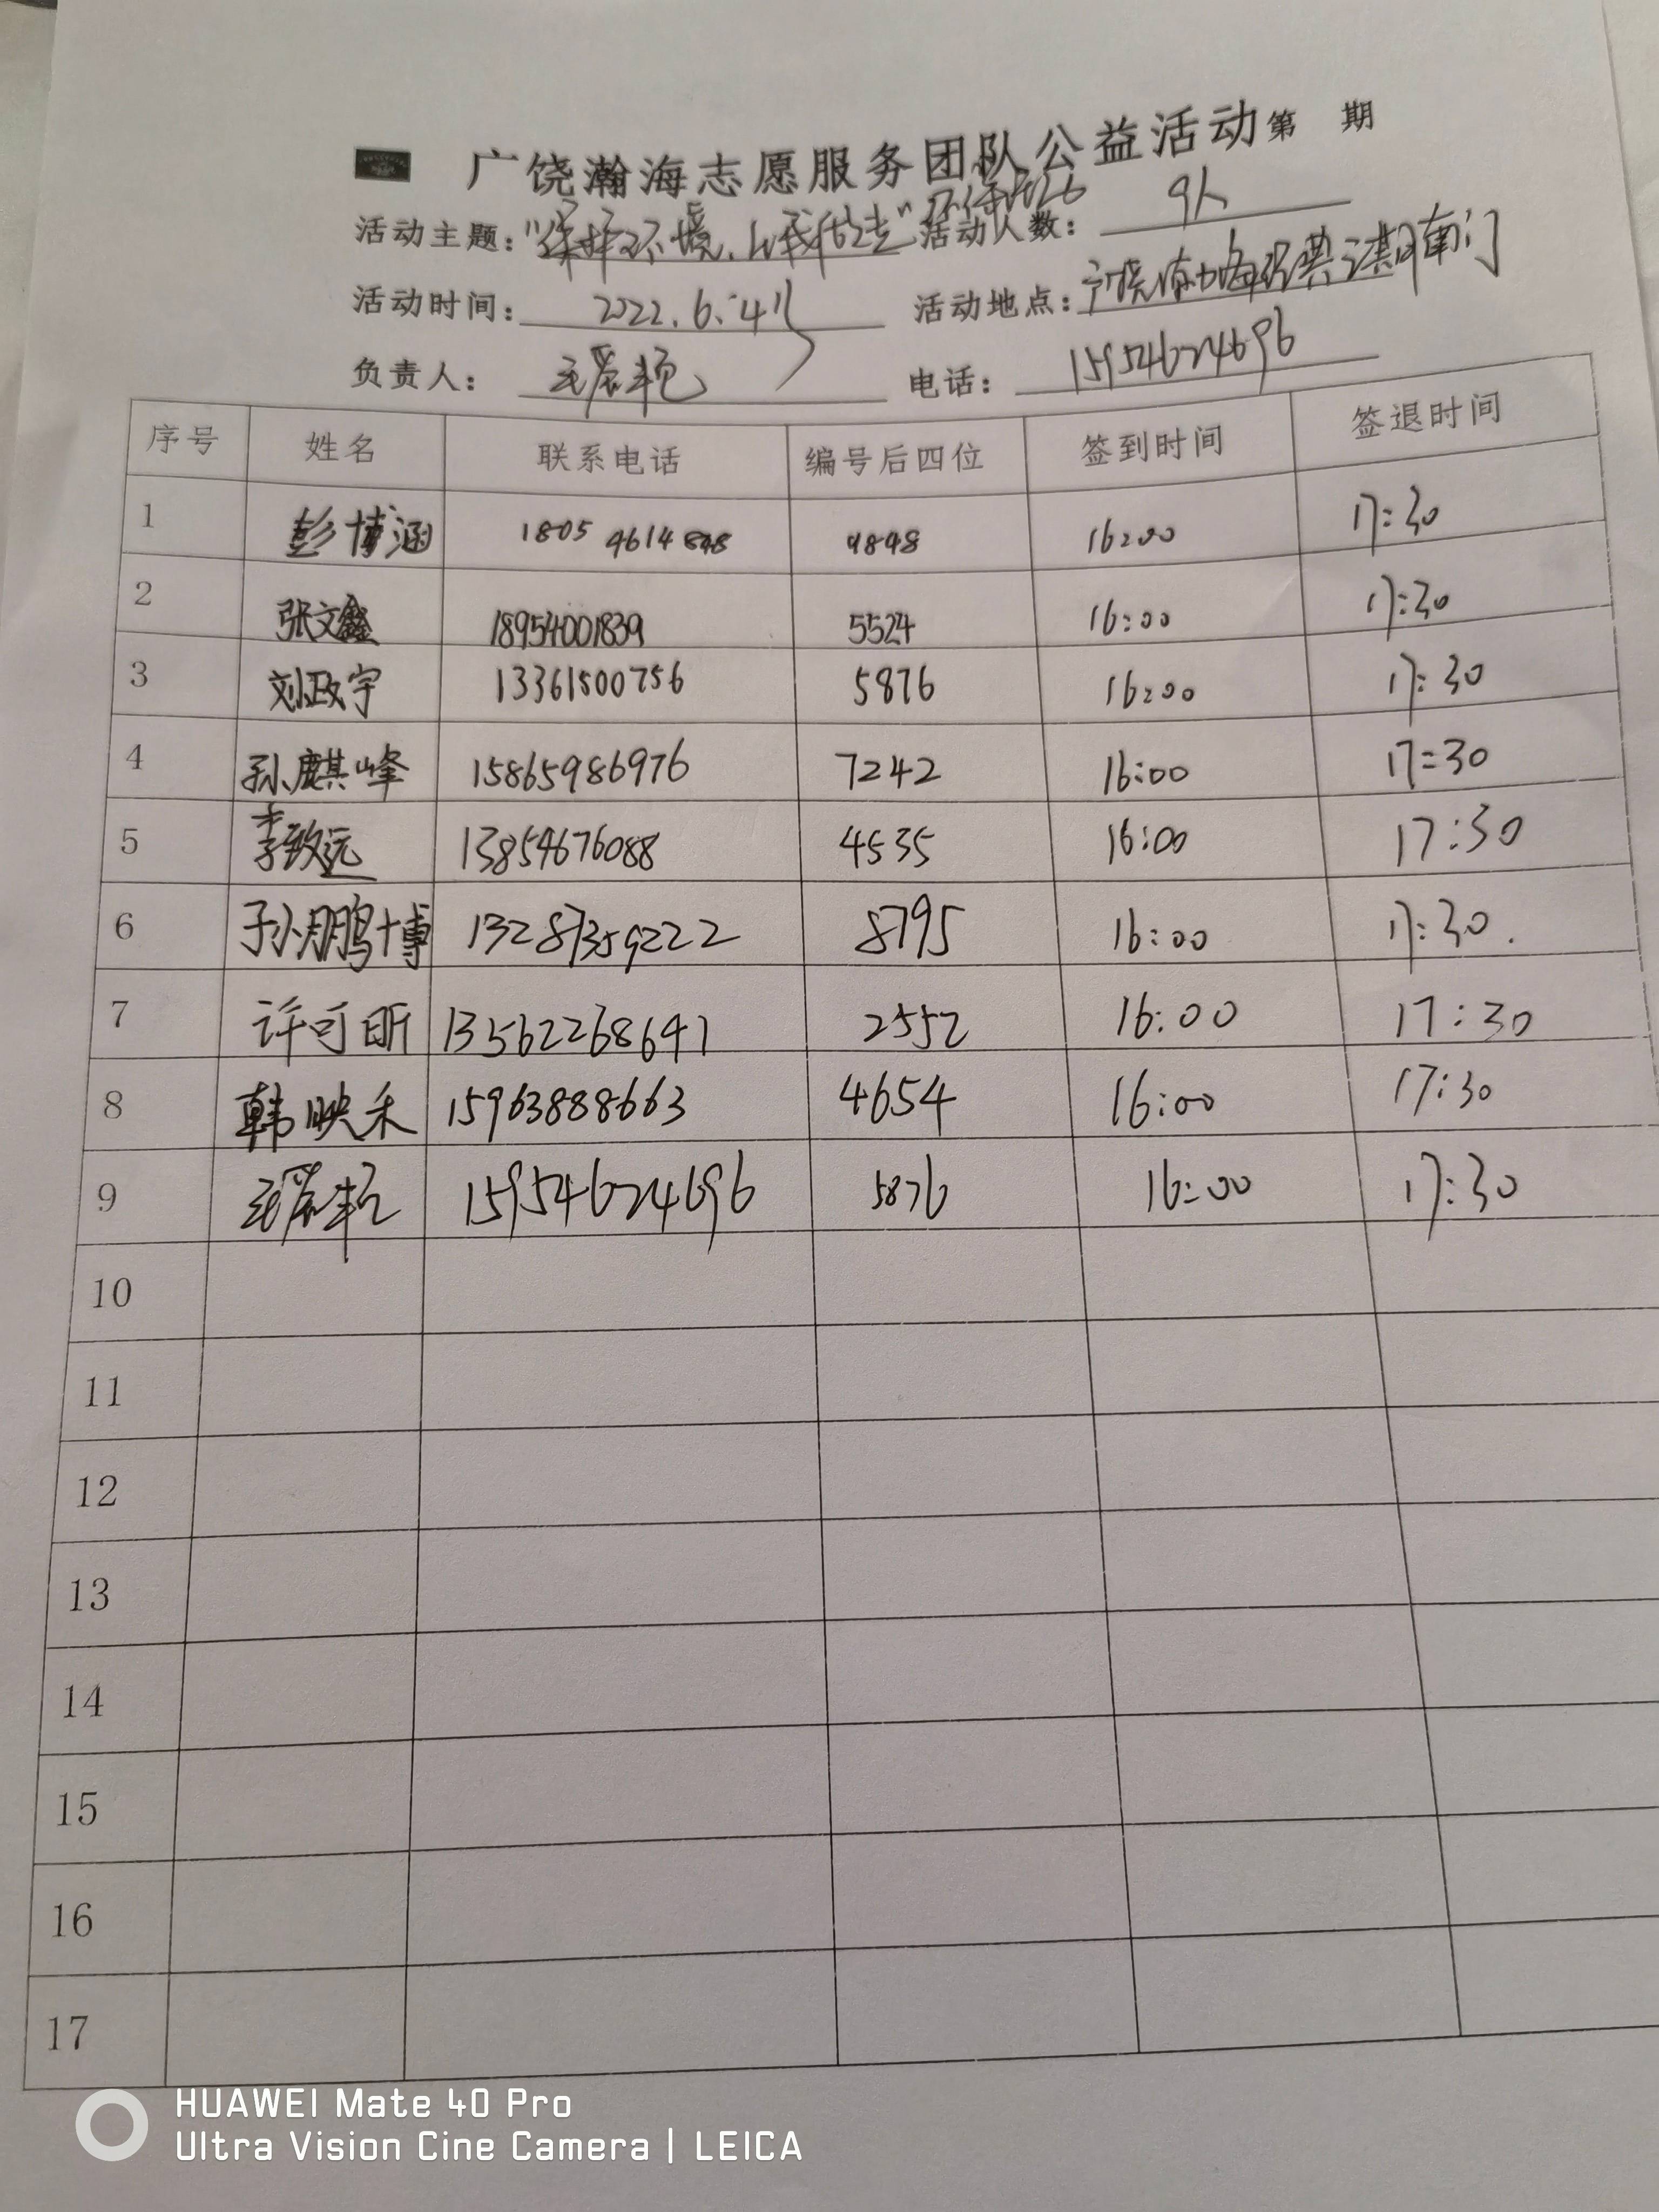 广饶瀚海志愿服务团队公益活动第 期
活动主题："保护环境,从我做起" 环保 活动人数：9人
活动时间：2022.6.4 活动地点：广饶 南门
负责人： 电话：15954624696
序号 姓名 联系电话 编号后四位 签到时间 签退时间
1 彭博涵 1805 4614898 4898 16:00 17:30
2 张文鑫 18954001839 5524 16:00 17:30
3 刘政宇 13361500756 5876 16:00 17:30
4 孙麒峰 15865986976 7242 16:00 17:30
5 李致远 13854676088 4535 16:00 17:30
6 孙鹏博 13287359222 8795 16:00 17:30.
7 许可昕 13562268641 2552 16:00 17:30
8 韩映禾 15963888663 4654 16:00 17:30
9 15954624696 5876 16:00 17:30
10
11
12
13
14
15
16
17
HUAWEI Mate 40 Pro
Ultra Vision Cine Camera | LEICA